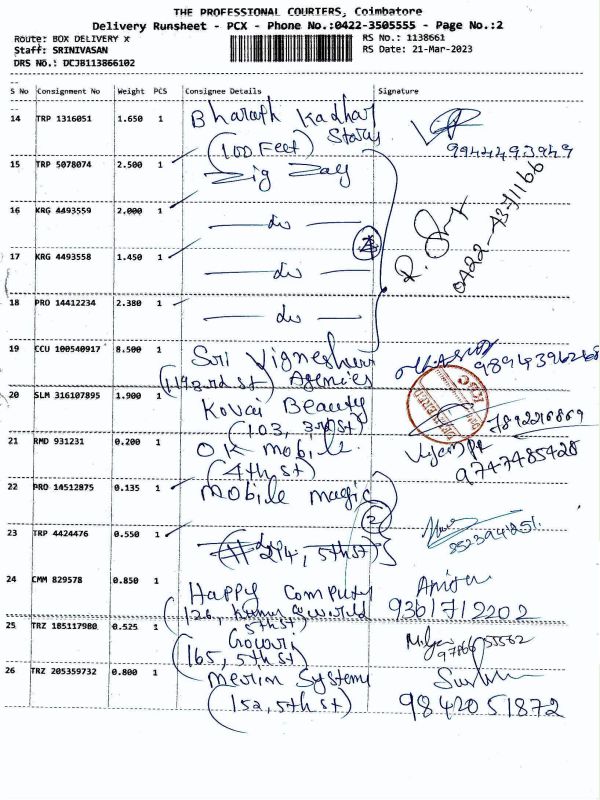 THE PROFESSIONAL COURIERS, Coimbatore
Delivery Runsheet - PCX - Phone No.:0422-3505555 - Page No.:2
Route: BOX DELIVERY x RS No.: 1138661
Staff: SRINIVASAN RS Date: 21-Mar-2023
DRS No.: DCJB113866102
S No Consignment No Weight PCS Consignee Details Signature
14 TRP 1316051 1.650 1 Bharath Kadhar Stores
(100 Feet) 9944493949
15 TRP 5078074 2.500 1 Zig Zag
16 KRG 4493559 2.000 1 do
0422-4371166
17 KRG 4493558 1.450 1 do
18 PRO 14412234 2.380 1 do
19 CCU 100540917 8.500 1 Sri Vigneshwar Agencies
20 SLM 316107895 1.900 1 Kovai Beauty
(103, 3rd st) 7892216869
21 RMD 931231 0.200 1 OK mobile
(4th st) 9747485428
22 PRO 14512875 0.135 1 mobile magic
2
23 TRP 4424476 0.550 1 do
214, 5th st)
24 CMM 829578 0.850 1 Happy Computer
9361712202
5th st)
25 TRZ 185117980 0.525 1 Gowri
(165, 5th st)
26 TRZ 205359732 0.800 1 Merlin Systems
(152, 5th st) 9842051872